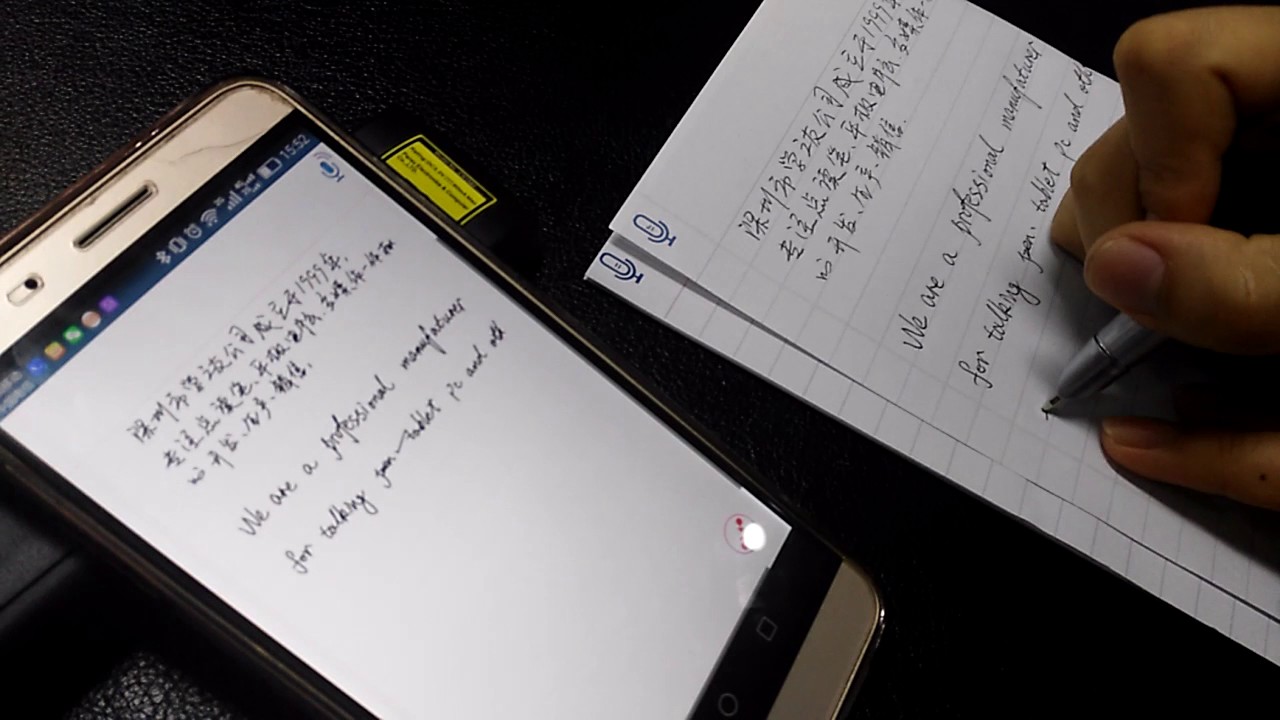 15:52
深圳市学之友公司成立于1999年,
专注点读笔、平板电脑,
研发、生产、销售.
We are a professional manufaturer
for talking pen, tablet pc and oth
深圳市学之友公司成立于1999年
专注点读笔、平板电脑,
研发、生产、销售.
We are a professional manufaturer
for talking pen, tablet pc and oth